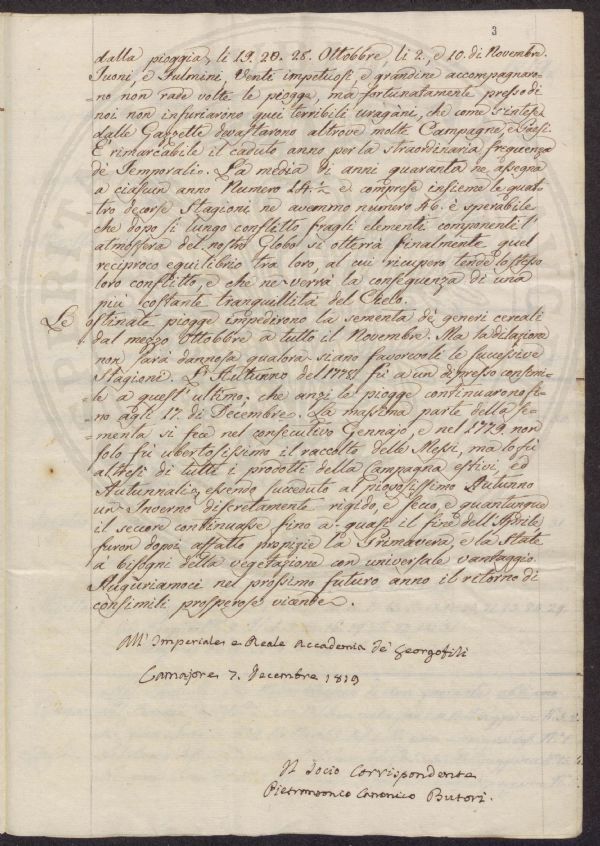 3
dalla pioggia, li 19. 20. 28. Ottobbre, li 2., e 10. di Novembre.
Tuoni, e Fulmini, Venti impetuosi, e grandine accompagnaro-
-no non rade volte le piogge, ma fortunatamente presso di
noi non infuriarono quei terribili uragàni, che come s'intese
dalle Gazzette devastarono altrove molte Campagne, e Paesi.
È rimarcabile il caduto anno per la straordinaria frequenza
de' Temporali. La media di anni quaranta ne assegna
a ciascun anno Numero 24.½ e comprese insieme le quat-
-tro decorse Stagioni ne avemmo numero 46. è sperabile
che dopo sì lungo conflitto fragli elementi componenti l'
atmosfera del nostro Globo si otterrà finalmente quel
reciproco equilibrio tra loro, al cui ricupero tende lo stesso
loro conflitto, e che ne verrà la conseguenza di una
più costante tranquillità del Cielo.
Le ostinate piogge impedirono la sementa de' generi cereali
dal mezzo Ottobbre a tutto il Novembre. Ma la dilazione
non sarà dannosa qualora siano favorevoli le successive
Stagioni. L'Autunno del 1778 fù a un dipresso consimi-
-le a quest'ultimo; che anzi le piogge continuarono fi-
-no agli 17. di Decembre. La massima parte della se-
-menta si fece nel consecutivo Gennajo, e nel 1779. non
solo fù ubertosissimo il raccolto delle Messi, ma lo fù
altresì di tutti i prodotti della Campagna estivi, ed
Autunnali, essendo succeduto al piovosissimo Autunno
un Inverno discretamente rigido, e secco, e quantunque
il seccore continuasse fino a quasi il fine dell'Aprile,
furon dopoi affatto propizie la Primavera, e la State
a bisogni della vegetazione con universale vantaggio.
Auguriamoci nel prossimo futuro anno il ritorno di
consimili prosperose vicende.
All'Imperiale e Reale Accademia de' Georgofili
Camajore 7. Decembre 1819
Il Socio Corrispondente
Canonico Butori.